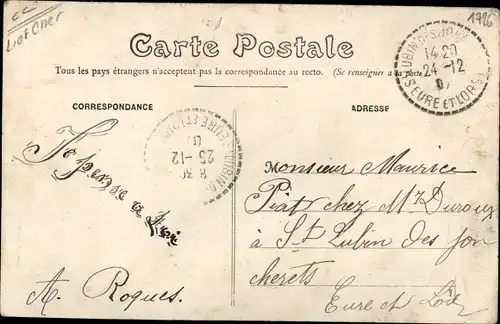 Loir et Cher
1786
Carte Postale
Tous les pays étrangers n'acceptent pas la correspondance au recto. (Se renseigner à la poste
CORRESPONDANCE
ADRESSE
14 20
24 -12
EURE ET LOIR
25 -12
EURE ET LOIR
Je pense a toi
A. Roques.
Monsieur Maurice
Piat chez Mr Duroux
à St Lubin des jon
cherets
Eure et Loir